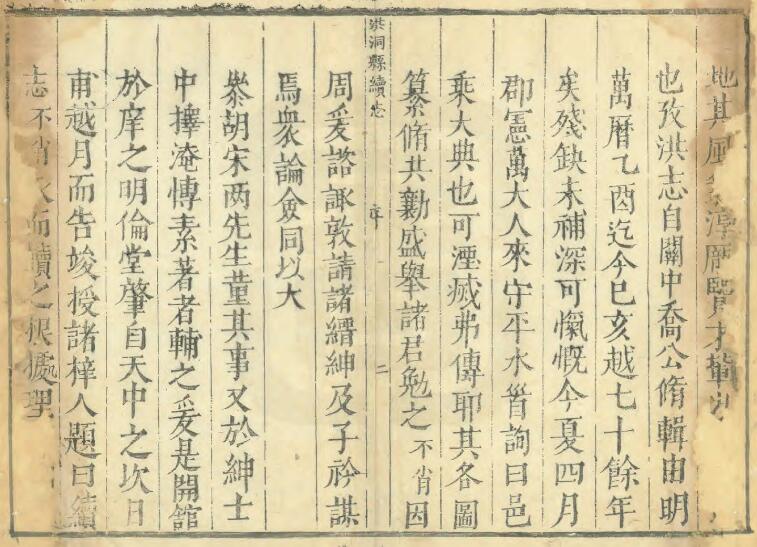 地其風淳賢才輩
也攷洪志自關中喬公脩輯由明
萬曆乙酉迄今巳亥越七十餘年
矣殘缺未補深可愾慨今夏四月
郡憲萬大人來守平水首詢曰邑
乘大典也可湮滅弗傳耶其各圖
纂脩共勷盛舉諸君勉之不肖因
洪洞縣續志 序 二
周爰諮諏敦請諸縉紳及子衿謀
焉衆論僉同以大
叅胡宋两先生董其事又於紳士
中擇淹愽素著者輔之爰是開館
於庠之明倫堂肇自天中之次日
甫越月而告竣授諸梓人題曰續
志不肖而讀之根據理